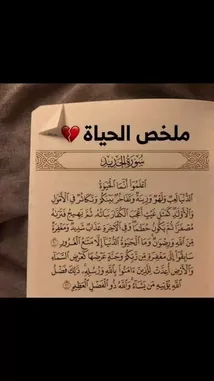 ملخص الحياة 💔
سُورَةُ الحَدِيدِ
ٱعۡلَمُوٓاْ أَنَّمَا ٱلۡحَيَوٰةُ
ٱلدُّنۡيَا لَعِبٞ وَلَهۡوٞ وَزِينَةٞ وَتَفَاخُرُۢ بَيۡنَكُمۡ وَتَكَاثُرٞ فِي ٱلۡأَمۡوَٰلِ
وَٱلۡأَوۡلَٰدِۖ كَمَثَلِ غَيۡثٍ أَعۡجَبَ ٱلۡكُفَّارَ نَبَاتُهُۥ ثُمَّ يَهِيجُ فَتَرَىٰهُ
مُصۡفَرّٗا ثُمَّ يَكُونُ حُطَٰمٗاۖ وَفِي ٱلۡأٓخِرَةِ عَذَابٞ شَدِيدٞ وَمَغۡفِرَةٞ
مِّنَ ٱللَّهِ وَرِضۡوَٰنٞۚ وَمَا ٱلۡحَيَوٰةُ ٱلدُّنۡيَآ إِلَّا مَتَٰعُ ٱلۡغُرُورِ ٢٠
سَابِقُوٓاْ إِلَىٰ مَغۡفِرَةٖ مِّن رَّبِّكُمۡ وَجَنَّةٍ عَرۡضُهَا كَعَرۡضِ ٱلسَّمَآءِ
وَٱلۡأَرۡضِ أُعِدَّتۡ لِلَّذِينَ ءَامَنُواْ بِٱللَّهِ وَرُسُلِهِۦۚ ذَٰلِكَ فَضۡلُ
ٱللَّهِ يُؤۡتِيهِ مَن يَشَآءُۚ وَٱللَّهُ ذُو ٱلۡفَضۡلِ ٱلۡعَظِيمِ ٢١